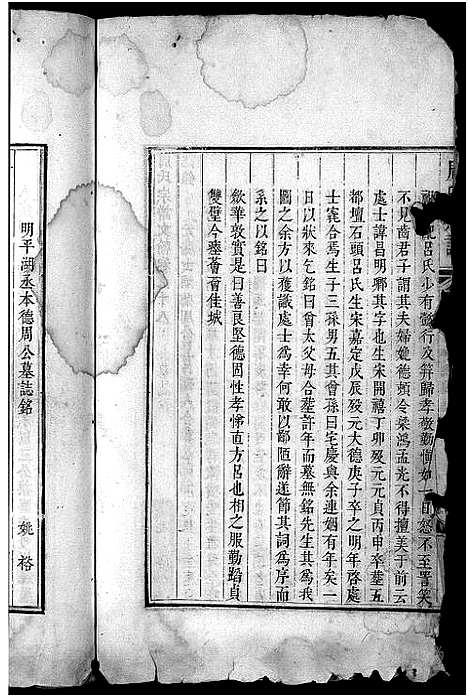 呂氏少有懿行及笄歸孝敬勤慎如一日怒不至詈笑
不見齒君子謂其夫婦婉德頡令梁鴻孟光不得擅美于前云
處士諱昌明卿其字也生宋開禧丁卯歿元元貞丙申卒塟五
都壇石頭呂氏生宋嘉定戊辰歿元大德庚子卒之明年啓處
士窆合焉生子三孫男五其曾孫曰宅慶與余連姻有年矣一
日以狀來乞銘曰曾太父母合塟許年而墓無銘先生其爲我
圖之余方以獲識處士爲幸何敢以鄙陋辭遂節其詞爲序而
系之以銘曰
歛華敦實是曰善良堅德固性孝悌直方呂也相之服勤蹈貞
雙璧今瘞薈薈佳城
明平湖丞本德周公墓誌銘
姚裕